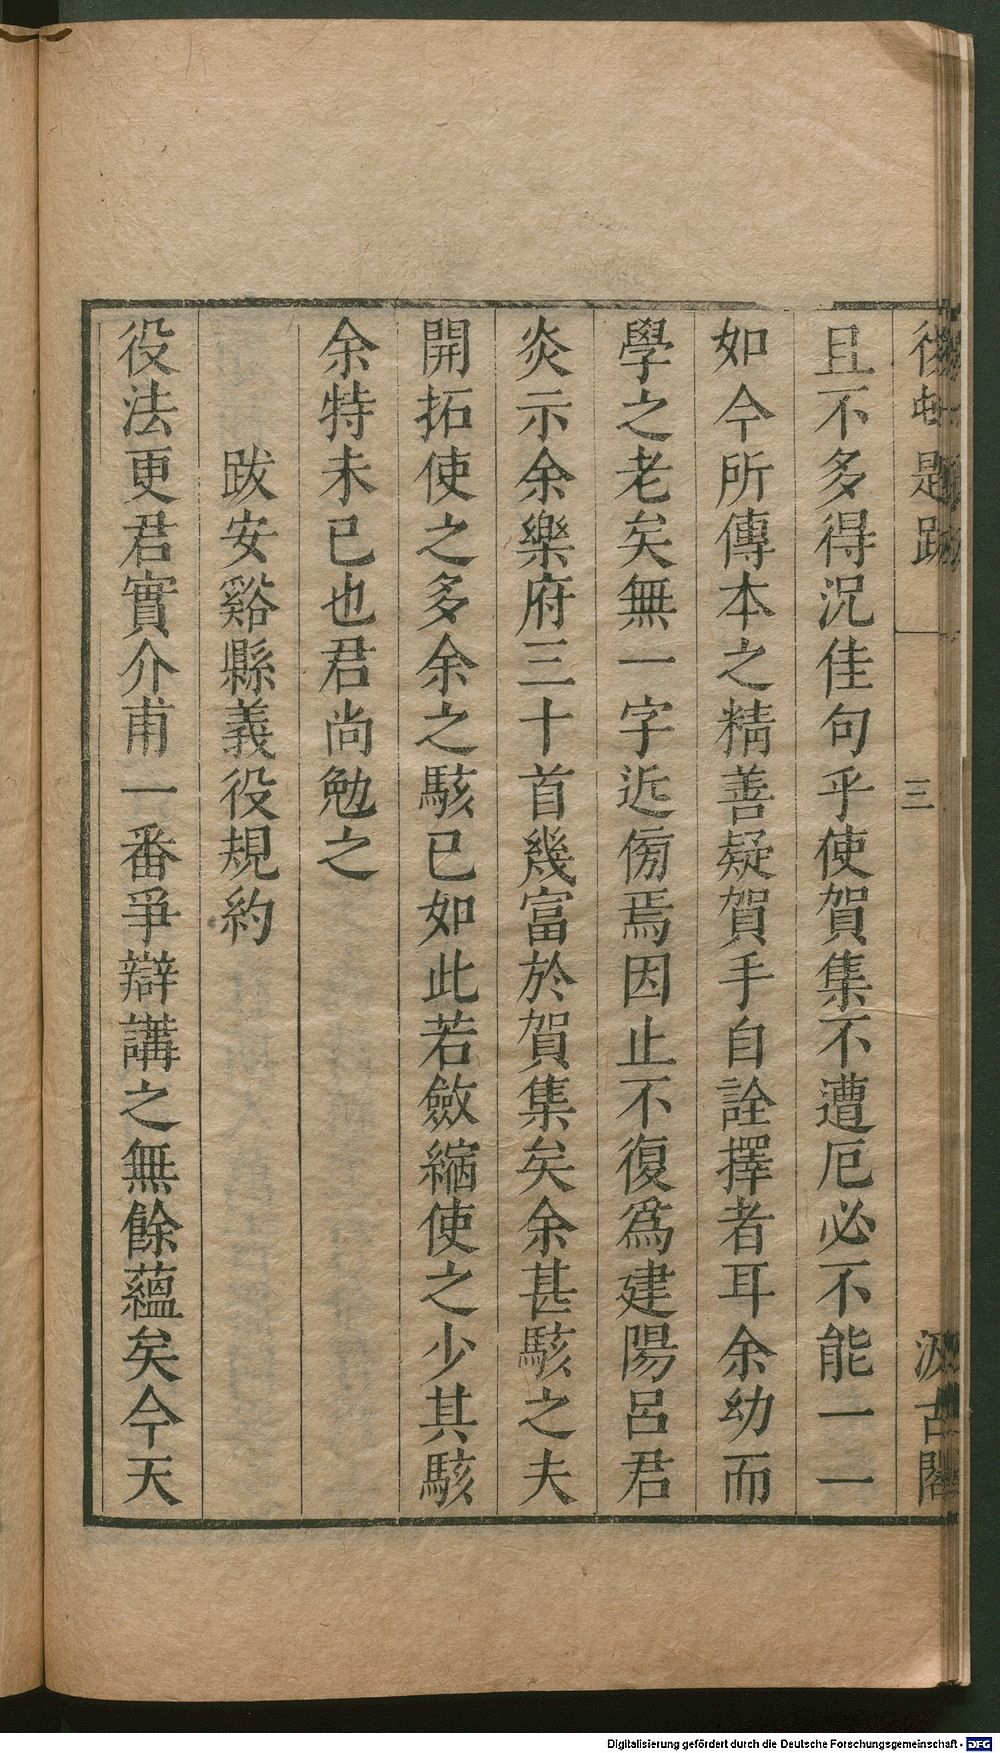 後村題跋
三
汲古閣
且不多得況佳句乎使賀集不遭厄必不能一一
如今所傳本之精善疑賀手自詮擇者耳余幼而
學之老矣無一字近傍焉因止不復爲建陽呂君
炎示余樂府三十首幾富於賀集矣余甚駭之夫
開拓使之多余之駭已如此若斂縮使之少其駭
余特未已也君尚勉之
跋安谿縣義役規約
役法更君實介甫一番爭辯講之無餘蘊矣今天
Digitalisierung gefördert durch die Deutsche Forschungsgemeinschaft - DFG